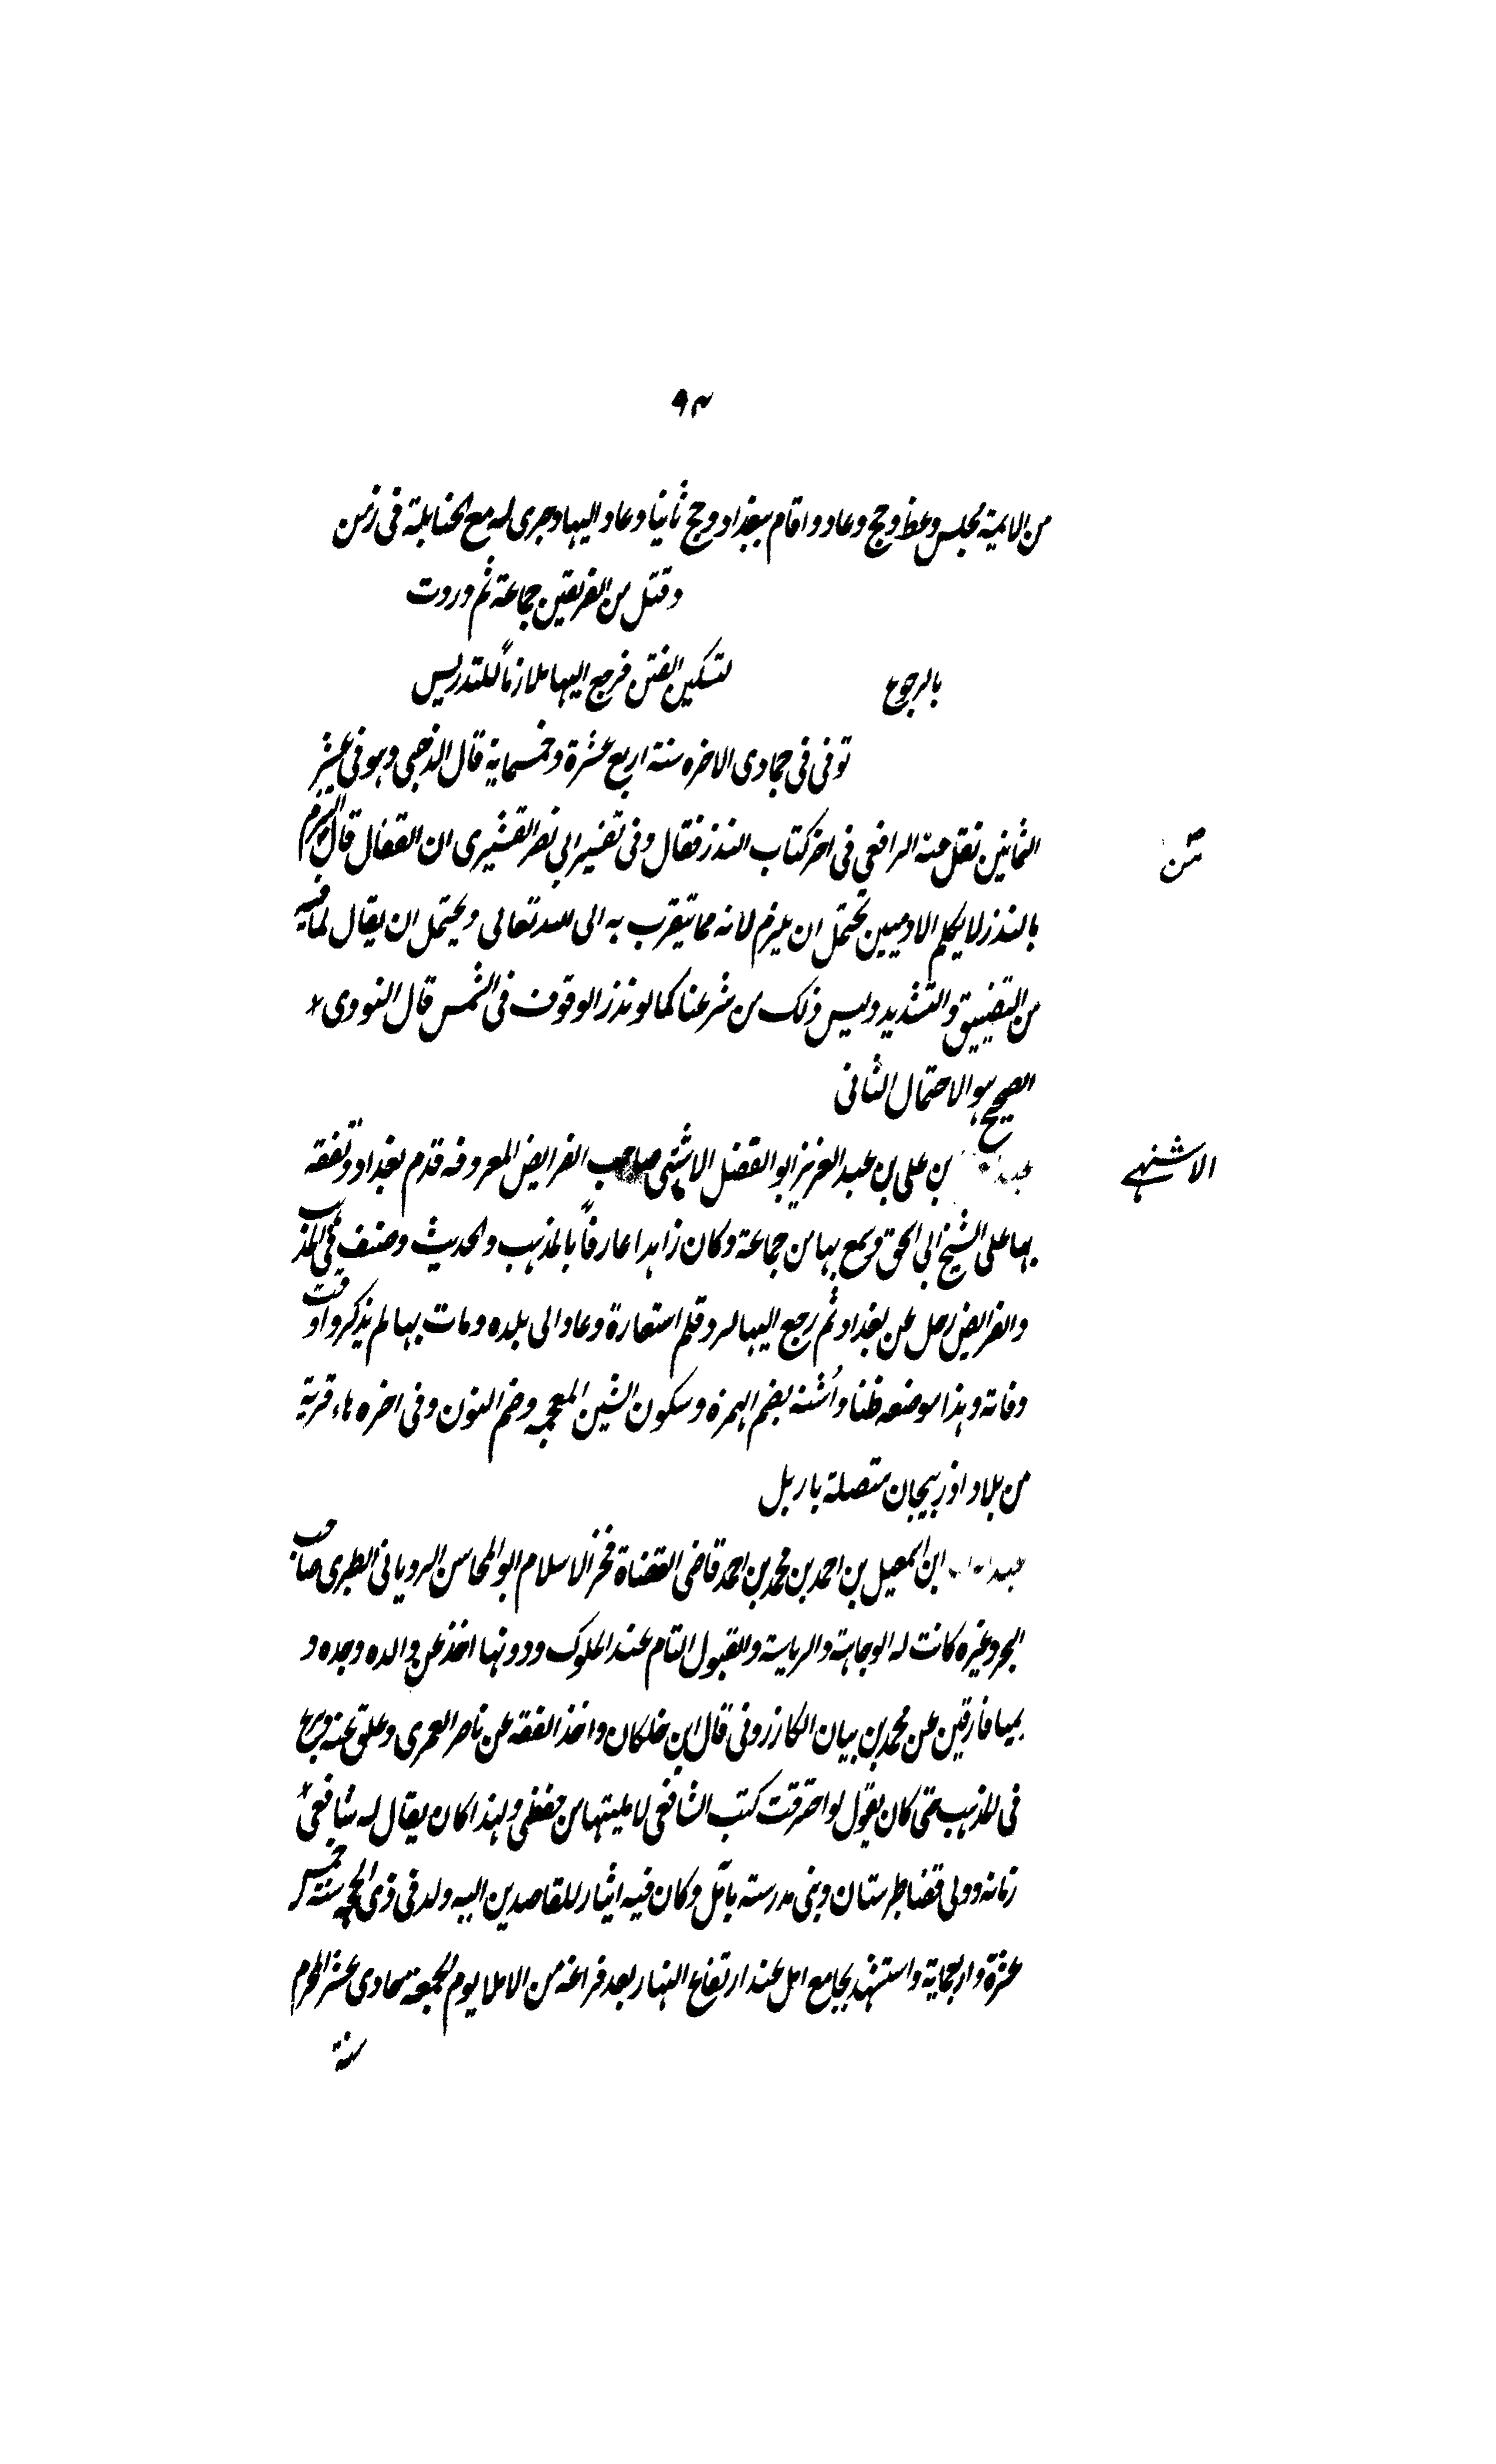 ٩٣
من الايمة مجلس وعظ وحج وعاد واقام ببغداد وحج ثانيا وعاد اليها وجرى له مع الحنابلة فى زمن
وقتل من الفريقين جماعة ثم وردت
بالرجوع لتسكين الفتن فرجع اليها ملازماً للتدريس
توفى فى جمادى الاخره سنة اربع عشرة وخمسماية قال الذهبى وهو فى عشر
الثمانين نقل عنه الرافعى فى اخر كتاب النذر فقال وفى تفسير ابى نصر القشيرى ان القفال قال من التزم
بالنذر لا يكلم الادميين يحتمل ان يلزم لانه مما يتقرب به الى الله تعالى ويحتمل ان يقال لما فيه
من التضييق والتشديد وليس ذلك من شرعنا كما لو نذر الوقوف فى الشمس قال النووى
الصحيح هو الاحتمال الثانى
الاشنهے
بن على بن عبد العزيز ابو الفضل الاشنهى صاحب الفرايض المعروفه قدم بغداد وتفقه
بها على الشيخ ابى اسحق وسمع بها من جماعة وكان زاهدا عارفاً بالمذهب والحديث وصنف فى المذهب
والفرايض رحل عن بغداد ثم رجع اليها لرد قلم استعارة وعاد الى بلده ومات بها لم يذكروا وقت
وفاته وهذا موضعه ظنا واُشنه بضم الهمزه وسكون الشين المعجمه وضم النون وفى اخره هاء قرية
من بلاد اذربيجان متصلة باربل
ابن اسمعيل بن احمد بن محمد بن احمد قاضى القضاة فخر الاسلام ابو المحاسن الرويانى الطبرى صاحب
البحر وغيره كانت له الوجاهة والرياسة والقبول التام عند الملوك ودونها اخذ عن والده وجده و
بميافارقين عن محمد بن بيان الكازرونى قال ابن خلكان واخذ الفقه عن ناصر العمرى وعلق عنه وبرع
فى المذهب حتى كان يقول لو احترقت كتب الشافعى لامليتها من حفظى ولهذا كان يقال له شافعى
زمانه وولى قضا طبرستان وبنى مدرسته بآمل وكان فيه ايثار للقاصدين اليه ولد فى ذى الحجه سنة خمس
عشرة واربعماية واستشهد بجامع امل عند ارتفاع النهار بعد فراغه من الاملا يوم الجمعة حادى عشر المحرم
سنة